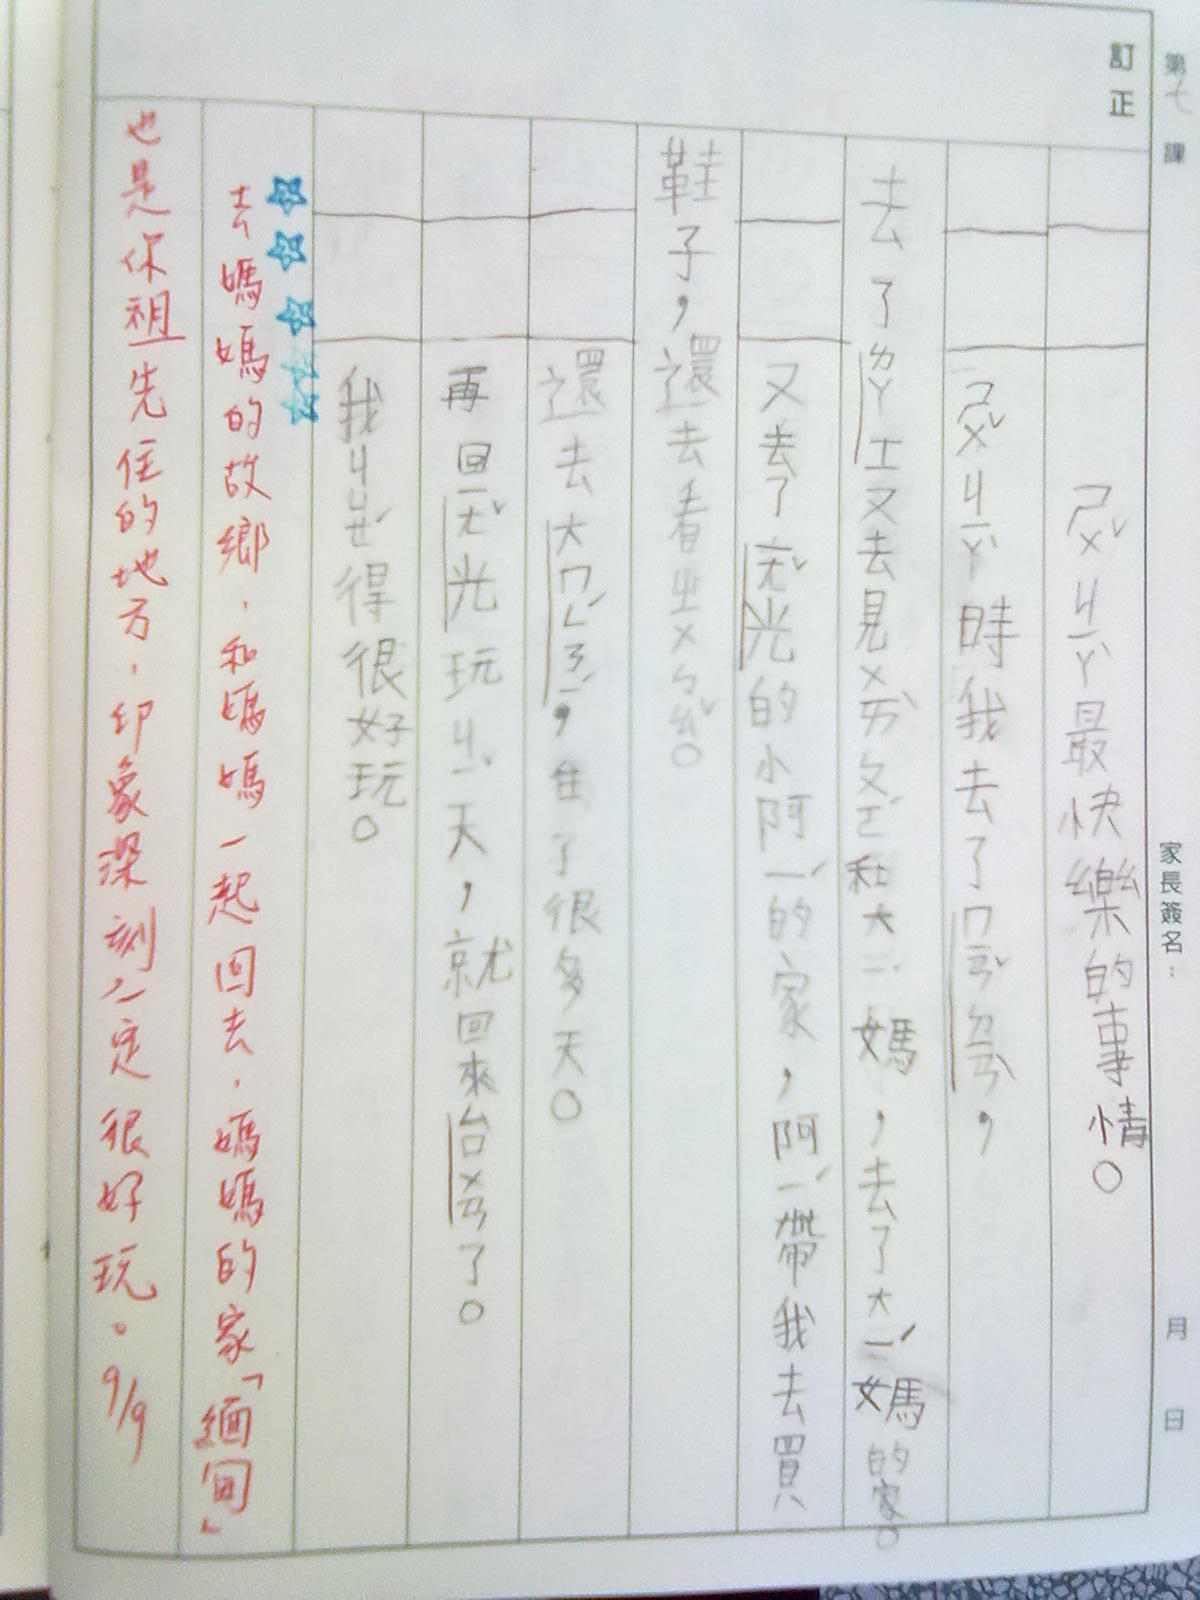 第七課 家長簽名： 月 日
訂正
ㄕㄨˇㄐㄧㄚˋ最快樂的事情。
ㄕㄨˇㄐㄧㄚˋ時我去了ㄇㄧㄢˇㄉㄧㄢˋ，
去了ㄌㄚ ㄒㄩ又去見ㄨㄞˋ
和大ㄧˊ媽，去了大ㄧˊ媽的家。
又去了ㄤˇ光的小阿ㄧˊ的家，阿ㄧˊ帶我去買
鞋子，還去看
還去大ㄇㄥˊ，住了很多天。
再回ㄤˇ光玩ㄐㄧˇ天，就回來台ㄨㄢ了。
我ㄐㄩㄝˊ得很好玩。
去媽媽的故鄉，和媽媽一起回去，媽媽的家「緬甸」
也是你祖先住的地方，印象深刻，一定很好玩。9/9